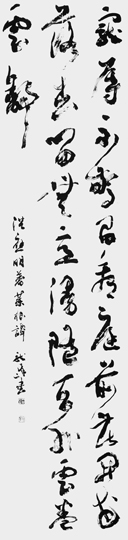 寵辱不驚閒看庭前花開花
落去留無意漫隨天外雲卷
雲舒
洪應明著菜根譚